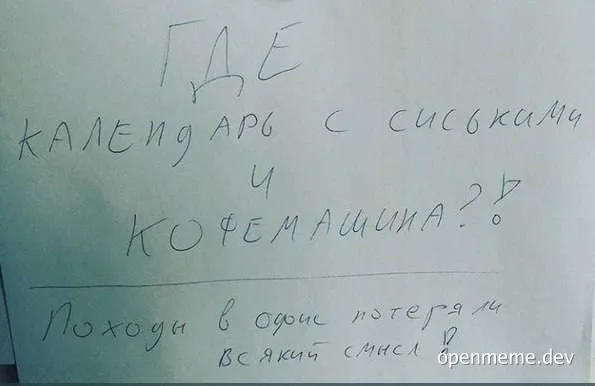 ГДЕ
КАЛЕНДАРЬ С СИСЬКИМИ
И
КОФЕМАШИНА?!
Походы в офис потеряли
всякий смысл!
openmeme.dev